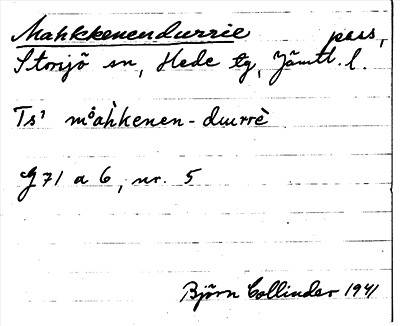 Mahkkenendurrie pass,
Storsjö sn, Hede tg, Jämtl. l.
Ts¹ må̀ahkenen-durrè
G 71 a 6, nr. 5
Björn Collinder 1941